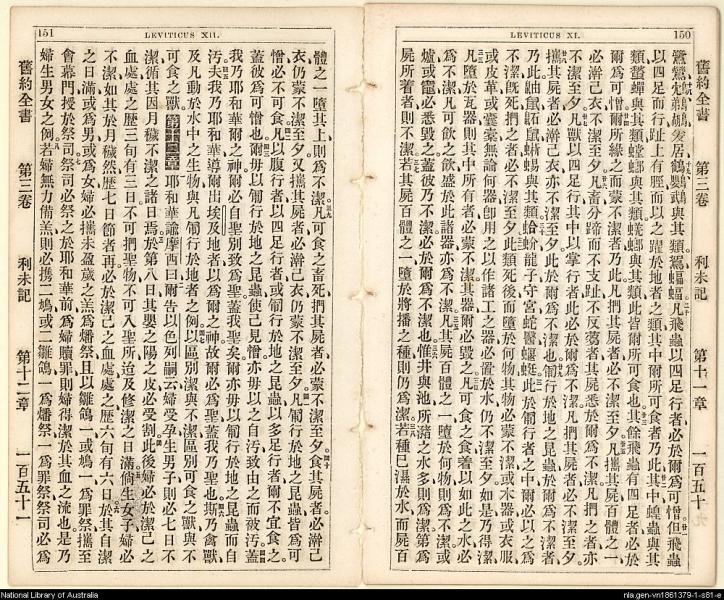 150 LEVITICUS XI.
舊約全書 第三卷 利未記 第十一章 一百五十
爰居鸚鵡與其類、鴽蝙蝠、凡飛蟲以四足行者、必於爾爲可憎、但飛蟲
以四足而行、趾上有脛、而以之躍於地者之類、其中爾所可食者、乃此其中、蝗蟲與其
類、與其類、螳螂與其類、蟋蟀與其類、此皆爾所可食也、其餘飛蟲有四足者、必於
爾爲可憎、爾所緣之而蒙不潔者乃此、凡捫其屍者、必不潔至夕、凡攜其屍百體之一、
必澣己衣、不潔至夕、凡畜分蹄而不支趾、不反芻者、其屍悉於爾爲不潔、凡捫之者亦
不潔至夕、凡獸以四足行、其中以掌行者、此必於爾爲不潔、凡捫其屍者、必不潔至夕、
攜其屍者、必澣己衣、亦不潔至夕、此於爾爲不潔也、匍行於地之昆蟲、於爾爲不潔者、
乃此、鼬鼠、蜥蜴與其類、蛤蚧、龍子、守宮、蛇醫、此於凡匍行者之中、爾必以之爲
不潔、旣死、捫之者必不潔至夕、此類死後、而墮於何物、其物必蒙不潔、或木器、或衣服、
或皮革、或囊橐、無論何器、卽用之以作諸工之器、必置於水、仍不潔至夕、如是乃得潔、
凡墮於瓦器、則其中所有者必蒙不潔、其器爾必毀之、凡可食之食、若以如此之水、必
爲不潔、凡可飲之飲、盛於此諸器、亦爲不潔、凡其屍百體之一、墮於何物、則爲不潔、或
爐或竈、必悉毀之、蓋彼乃不潔、必於爾爲不潔也、惟井與池、所潴之水多、則爲潔、第爲
屍所著者、則不潔、若其屍百體之一、墮於將播之種、則仍爲潔、若種已濕於水、而屍百
151 LEVITICUS XII.
體之一墮其上、則爲不潔、凡可食之畜死、捫其屍者、必蒙不潔至夕、食其屍者、必澣己
衣、仍蒙不潔至夕、又攜其屍者、必澣己衣、仍蒙不潔至夕、凡匍行於地之昆蟲、必爲可
憎、必不可食、凡以腹行者、以四足行者、或匍行於地之昆蟲以多足行者、爾不宜食之、
蓋彼爲可憎也、爾毋以匍行於地之昆蟲、使己見憎、亦毋以之自污、致由之而被污、蓋
我乃耶和華爾之神、爾必自聖別致爲聖、蓋我聖矣、爾亦毋以匍行於地之昆蟲而自
污、夫我乃耶和華、導爾出埃及地者、以爲爾之神、故爾必爲聖、蓋我乃聖也、斯乃禽獸、
及凡動於水中之生物、與凡匍行於地者之例、以區別潔與不潔、區別可食之獸、與不
可食之獸、第十二章 耶和華諭摩西曰、爾告以色列嗣云、婦受孕生男子、則必七日不
潔、循其因月穢不潔之諸日焉、於第八日、其嬰之陽之皮必受割、此後婦必於潔己之
血處處之、歷三旬有三日、不可捫聖物、不可入聖所、迨及修潔之日滿、倘生女子、婦必
不潔、如其於月穢然、歷七日節者再、必於潔己之血處處之、歷六旬有六日、於其自潔
之日滿、或爲男、或爲女、婦必攜未盈歲之羔爲燔祭、且以雛鴿一、或鳩一、爲罪祭、攜至
會幕門、授於祭司、祭司必祭之於耶和華前、爲婦贖罪、則婦得潔於其血之流也、是乃
婦生男女之例、若婦無力備羔、則必攜二鳩、或二雛鴿、一爲燔祭、一爲罪祭、祭司必爲
舊約全書 第三卷 利未記 第十二章 一百五十一
National Library of Australia
nla.gen-vn1861379-1-s81-e